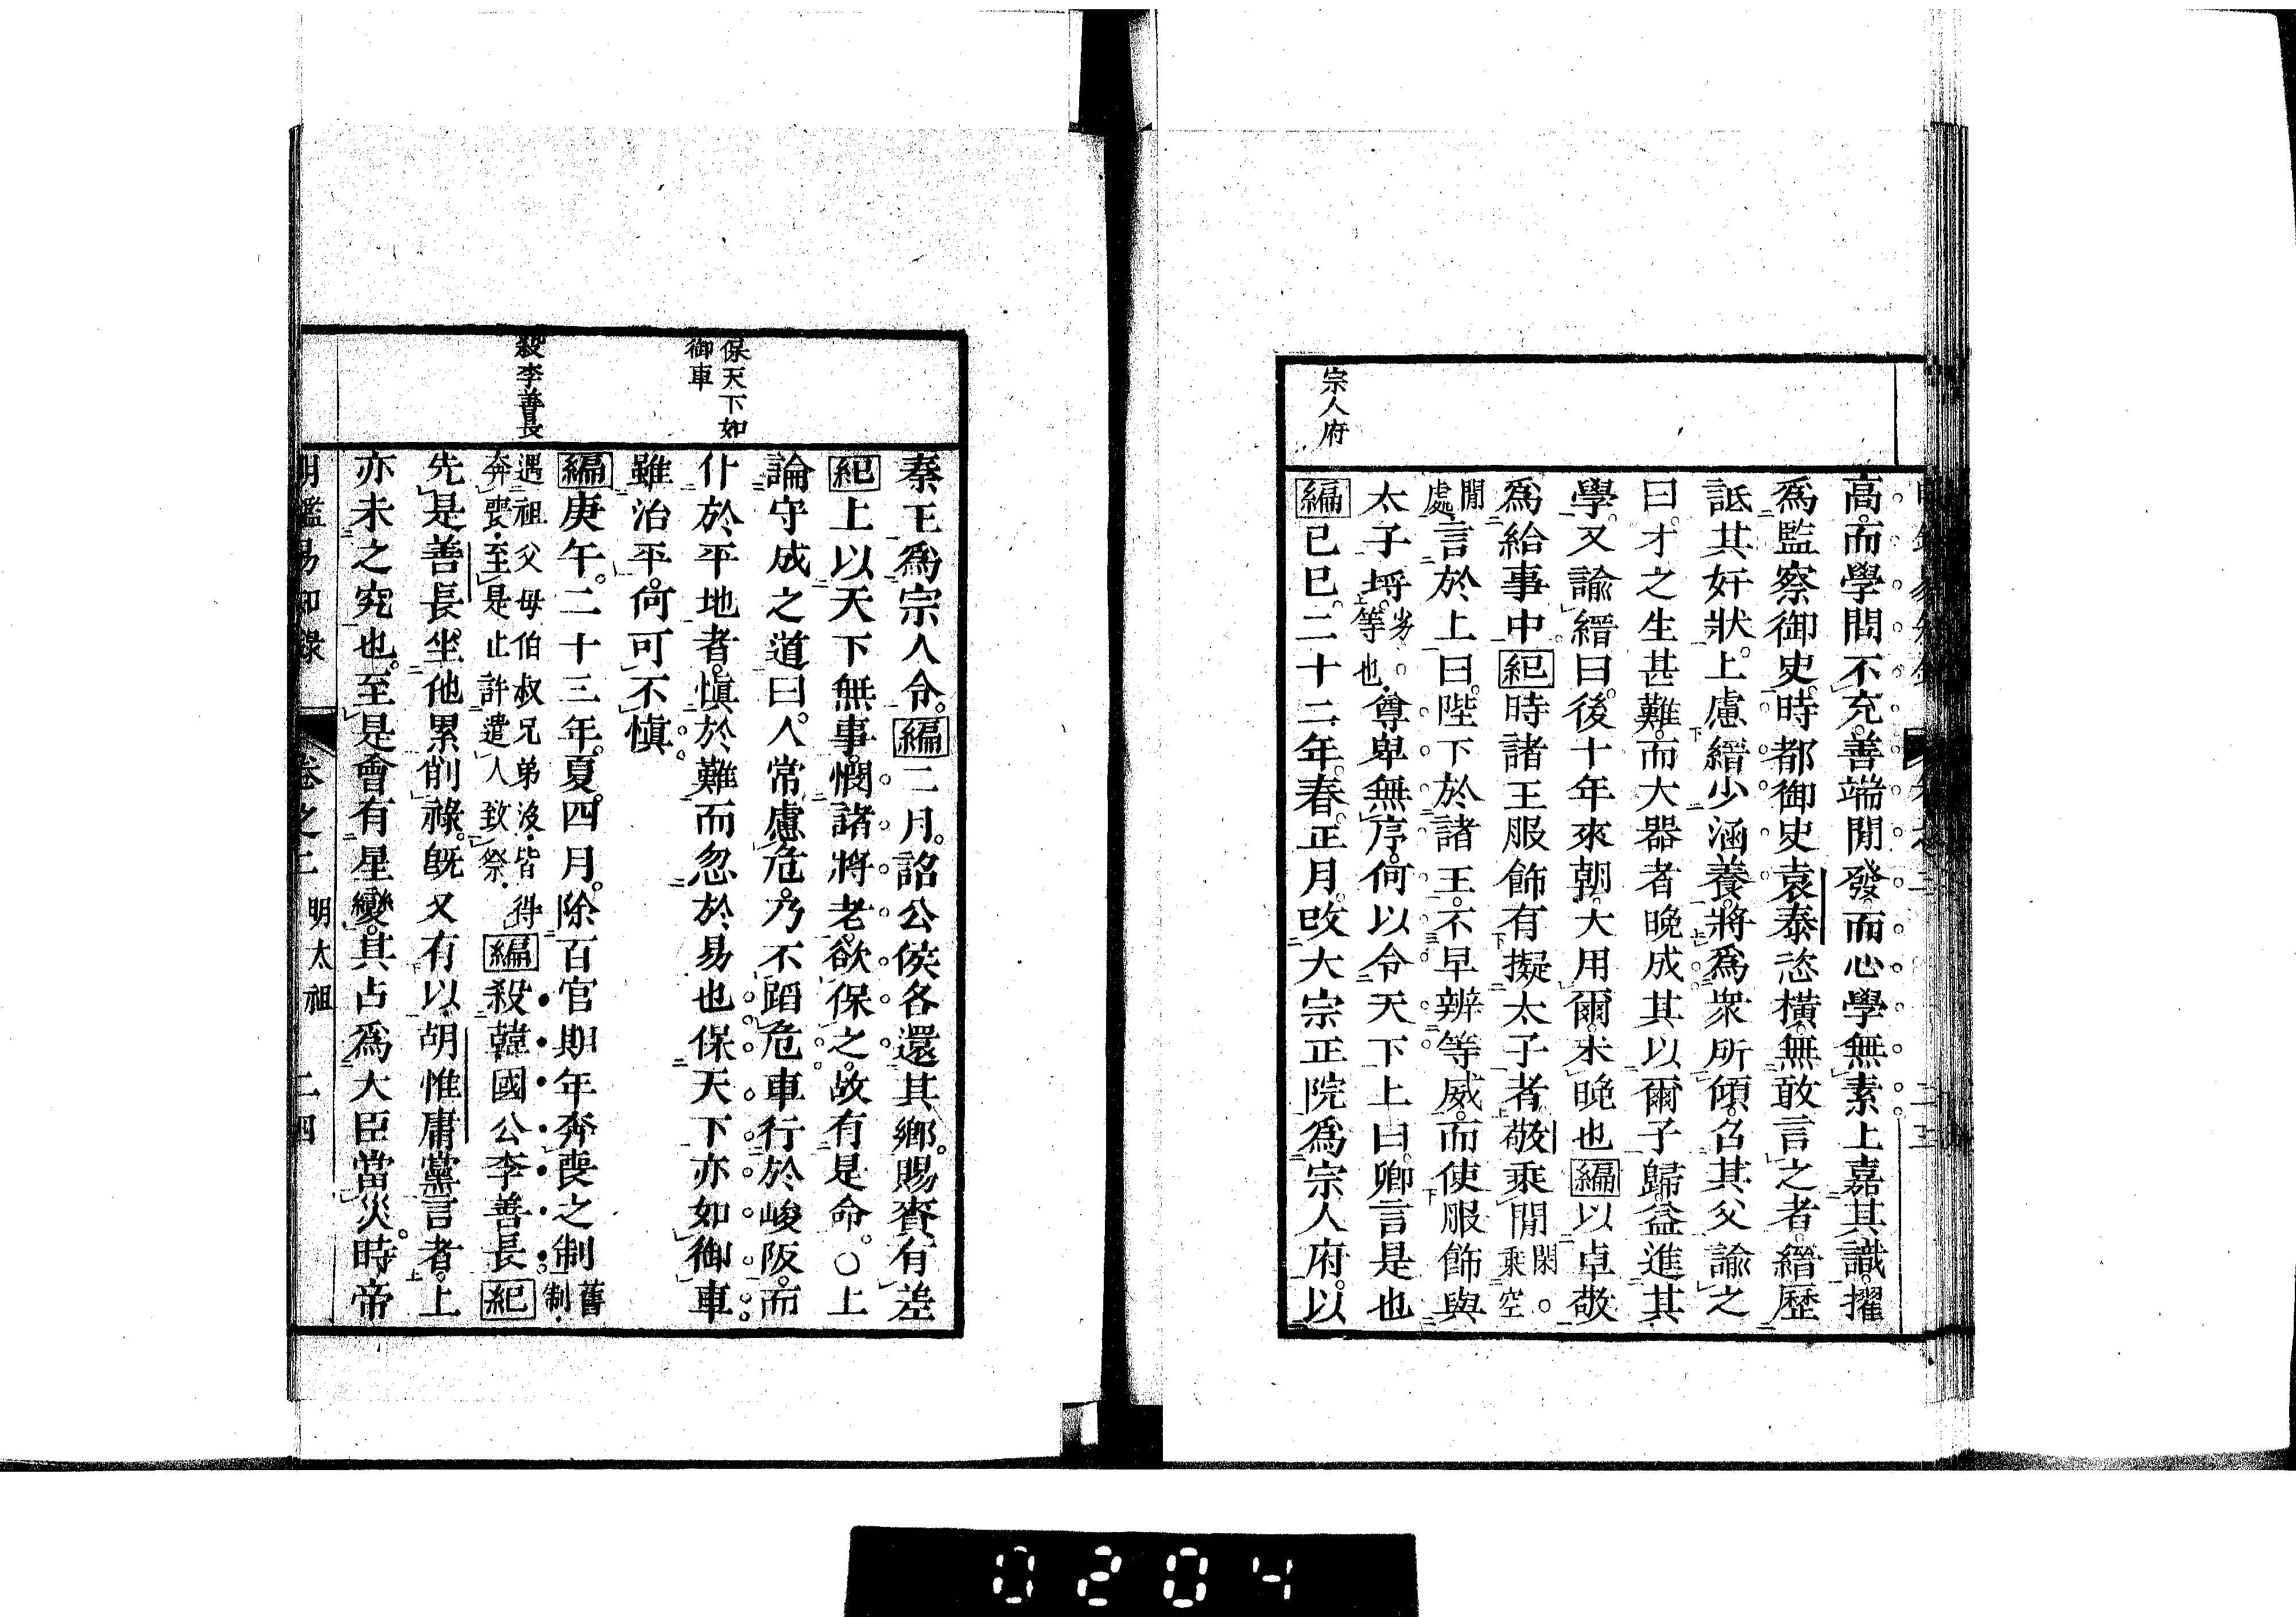 宗人府
高。而學問不充。善端開發。而心學無素上嘉其識。擢
爲監察御史。時都御史袁泰恣橫。無敢言之者。縉歷
詆其奸狀。上慮縉少涵養。將爲衆所傾。召其父諭之
曰。才之生甚難。而大器者晚成其以爾子歸益進其
學。又諭縉曰。後十年來朝。大用爾。未晚也編以卓敬
爲給事中紀時諸王服飾有擬太子者敬乘閒閑。乘空
閒處。言於上曰。陛下於諸王。不早辨等威。而使服飾與
太子埒。劣。等也。尊卑無序。何以令天下上曰。卿言是也
編己巳。二十二年。春。正月。改大宗正院爲宗人府。以
保天下如
御車
殺李善長
秦王爲宗人令。編二月。詔公侯各還其鄉。賜賚有差
紀上以天下無事。憫諸將老。欲保之。故有是命。○上
論守成之道曰。人常慮危。乃不蹈危。車行於峻阪。而
仆於平地者。愼於難而忽於易也保天下亦如御車
雖治平。何可不愼
編庚午。二十三年。夏。四月。除百官期年奔喪之制舊制。
遇祖父母伯叔兄弟沒。皆得奔喪。至是止許遣人致祭。編殺韓國公李善長紀
先是善長。坐他累削祿。旣又有以胡惟庸黨言者。上
亦未之究也。至是會有星變。其占爲大臣當災。時帝
明鑑易知錄 卷之二 明太祖 二四
0204